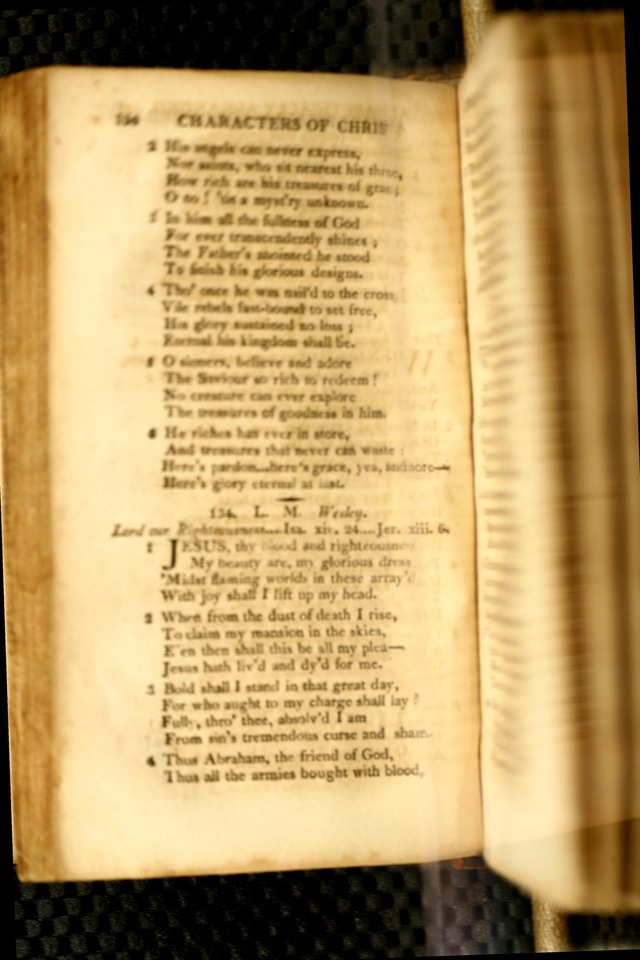 CHARACTERS OF CHRIS
2 His angels can never express,
Nor saints, who sit nearest his throne,
How rich are his treasures of grace;
O no! 'tis a myst'ry unknown.
3 In him all the fullness of God
For ever transcendently shines;
The Father's anointed he stood
To finish his glorious designs.
4 Tho' once he was nail'd to the cross,
Vile rebels fast-bound to set free,
His glory sustained no loss;
Eternal his kingdom shall be.
5 O sinners, believe and adore
The Saviour so rich to redeem!
No creature can ever explore
The treasures of goodness in him.
6 He riches has ever in store,
And treasures that never can waste:
Here's pardon...here's grace, yea, and more—
Here's glory eternal at last.
134. L. M. Wesley.
Lord our Righteousness....Isa. xlv. 24....Jer. xiii. 6.
1 JESUS, thy blood and righteousness
My beauty are, my glorious dress
'Midst flaming worlds in these array'd
With joy shall I lift up my head.
2 When from the dust of death I rise,
To claim my mansion in the skies,
E'en then shall this be all my plea—
Jesus hath liv'd and dy'd for me.
3 Bold shall I stand in that great day,
For who aught to my charge shall lay?
Fully, thro' thee, absolv'd I am
From sin's tremendous curse and sham
4 Thus Abraham, the friend of God,
Thus all the armies bought with blood,